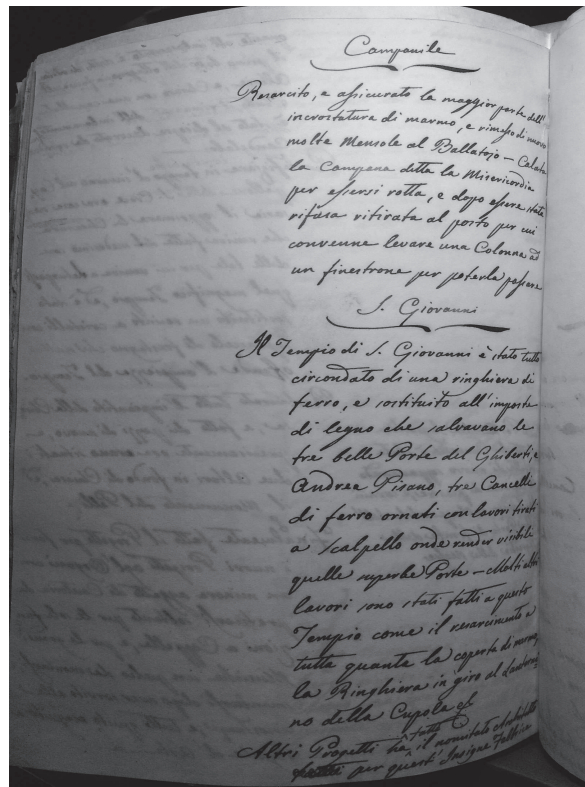 Campanile
Resarcito, e assicurato la maggior parte dell'
incrostatura di marmo, e rimesso di nuovo
molte Mensole al Ballatojo – Calata
la Campana detta la Misericordia
per essersi rotta, e dopo essere stata
rifusa ritirata al posto per cui
convenne levare una Colonna ad
un finestrone per poterla passare
S. Giovanni
Il Tempio di S. Giovanni è stato tutto
circondato di una ringhiera di
ferro, e sostituito all'imposte
di legno che salvavano le
tre belle Porte del Ghiberti, e
Andrea Pisano, tre Cancelli
di ferro ornati con lavori tirati
a scalpello onde render visibili
quelle superbe Porte – Molti altri
lavori sono stati fatti a questo
Tempio come il resarcimento a
tutta quanta la coperta di marmo,
la Ringhiera in giro al Lanterni
no della Cupola &c
Altri Progetti ha fatti il nominato Architetto
per quest'Insigne Fabbrica